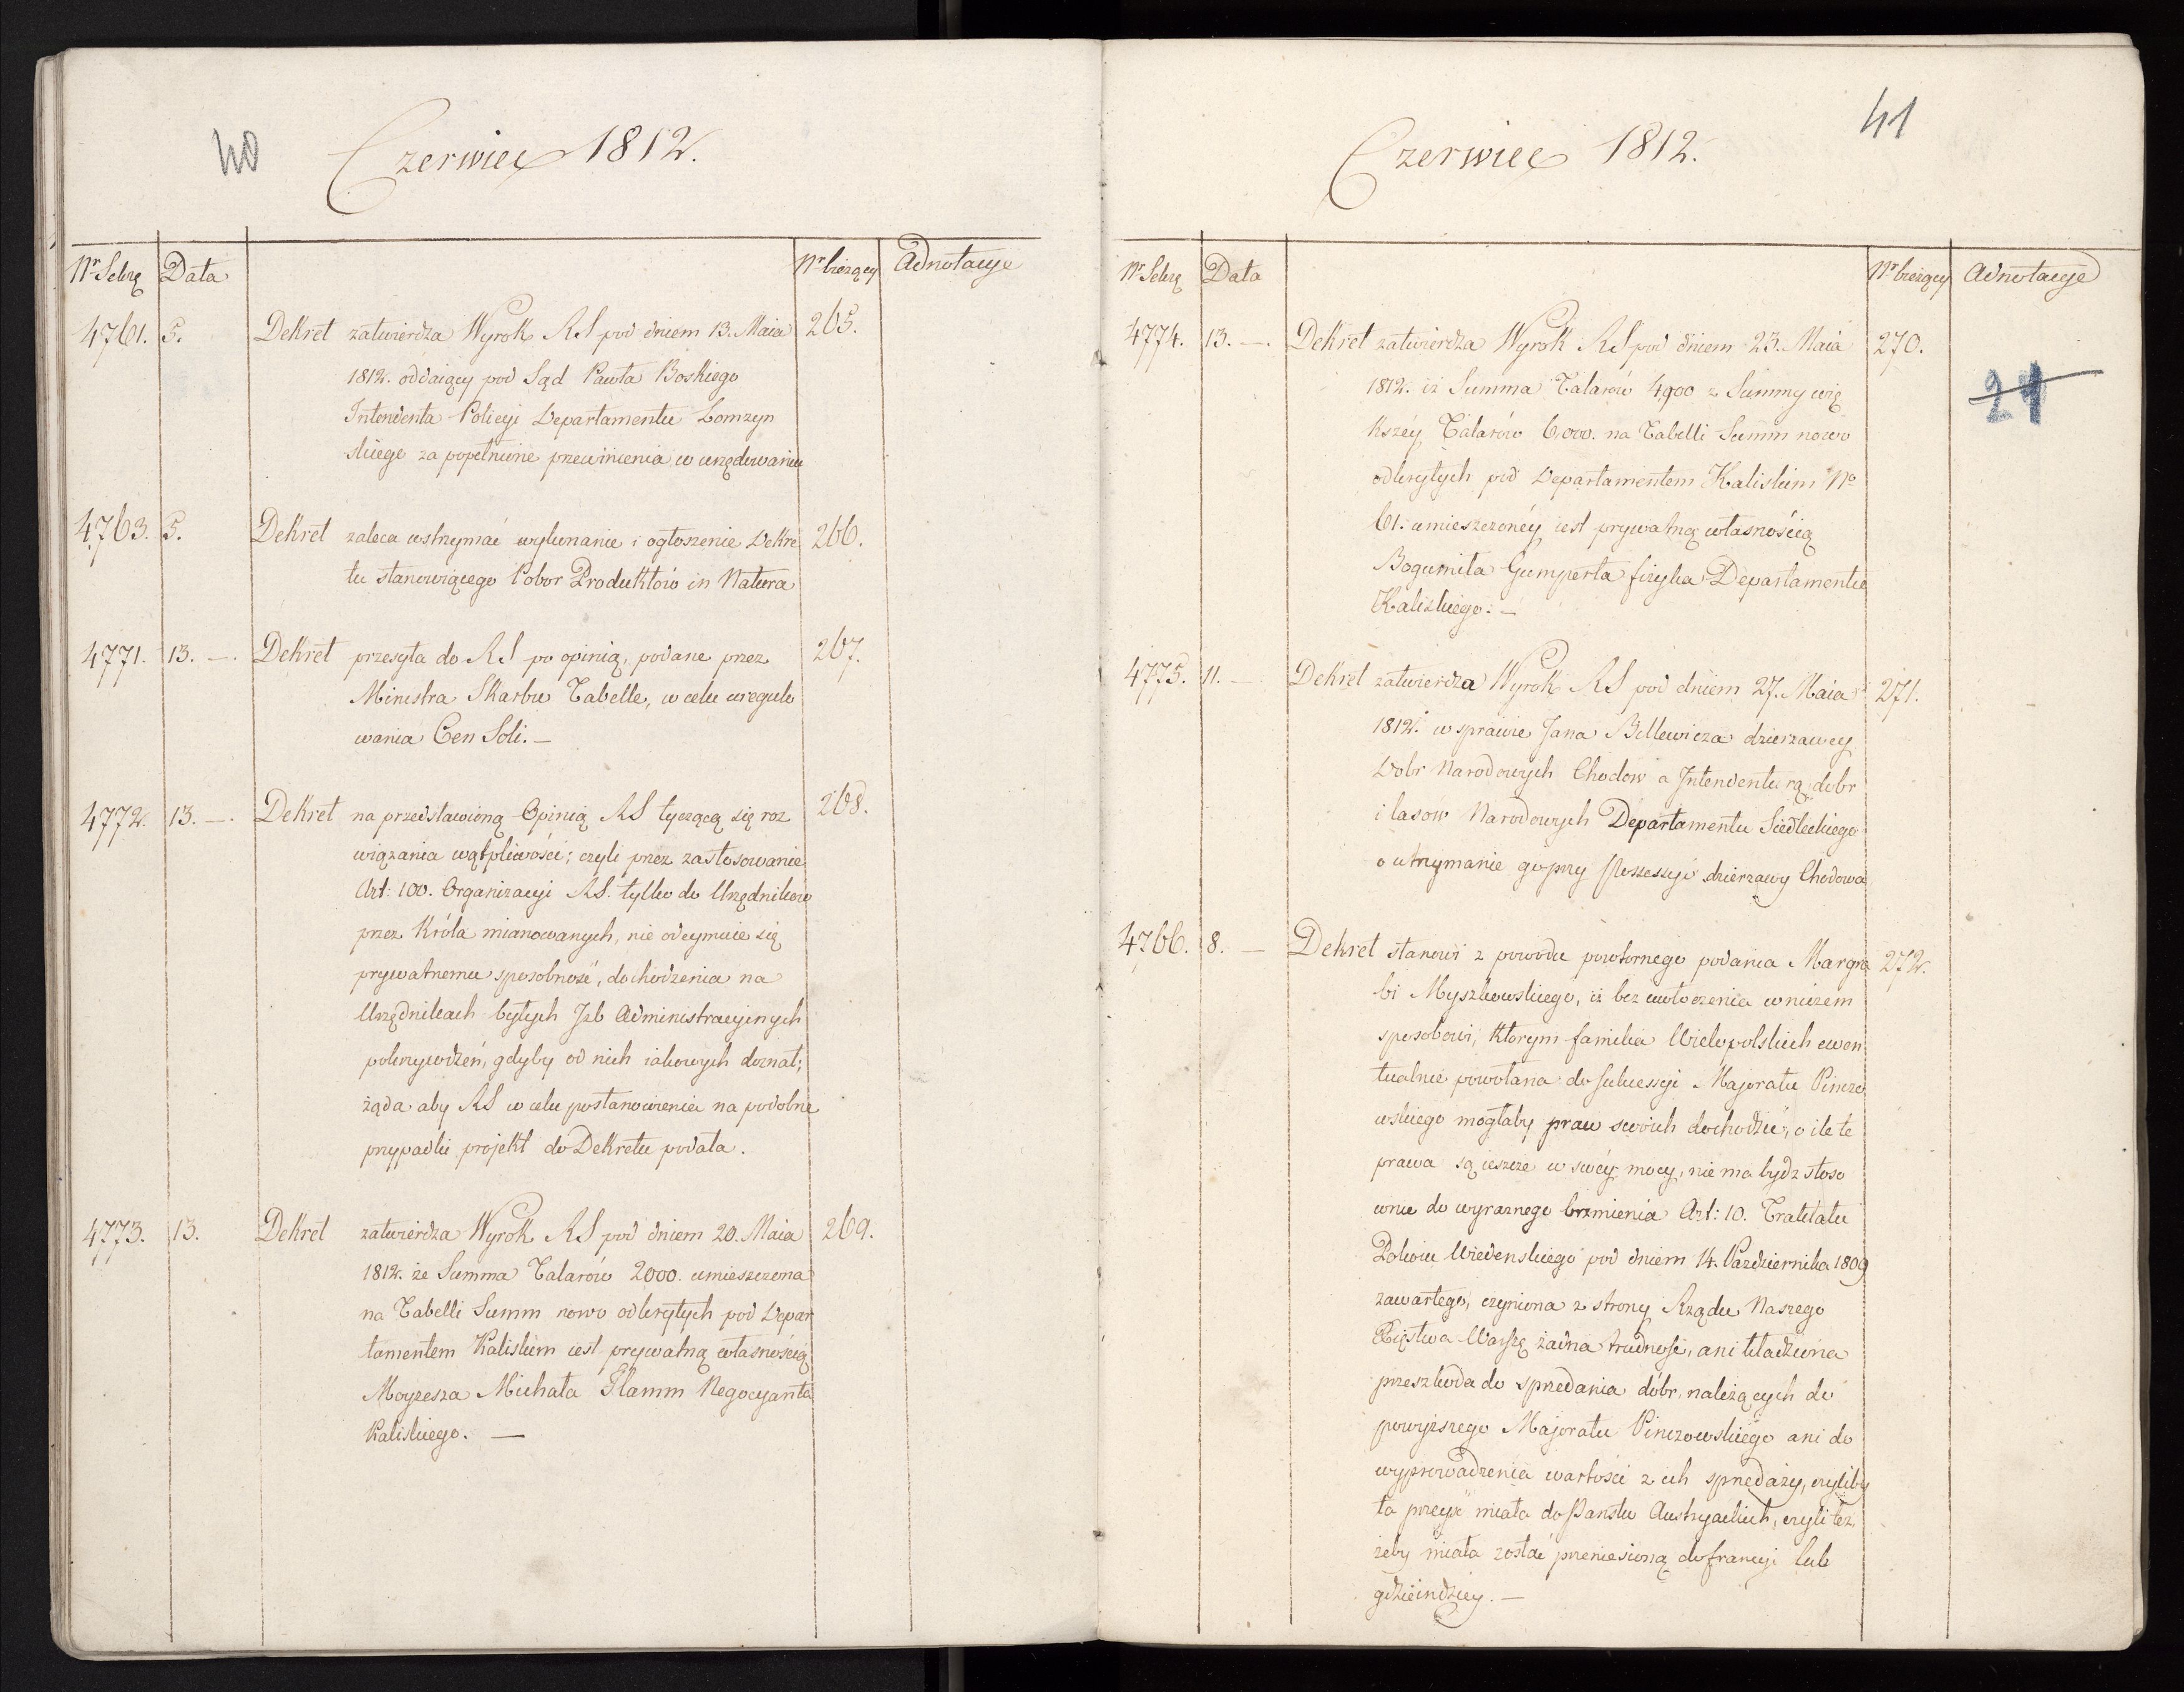 40
Czerwiec 1812.
Nr Sekrę Data Nr bieżący Adnotacye
4761. 5. Dekret zatwierdza Wyrok RS pod dniem 13. Maia 265.
1812. oddaiący pod Sąd Pawła Boskiego
Intendenta Policyi Departamentu Łomżyn
skiego za popełnione przewinienia w urzędowaniu
4763. 5. Dekret zaleca wstrzymać wykonanie i ogłoszenie Dekre 266.
tu stanowiącego Pobor Produktów in Natura
4771. 13. —. Dekret przesyła do RS po opinią, podane przez 267.
Ministra Skarbu Tabelle, w celu uregulo
wania Cen Soli. —
4772. 13. —. Dekret na przedstawioną Opinią RS tyczącą się roz 268.
wiązania wątpliwości; czyli przez zastosowanie
Art: 100. Organizacyi RS. tylko do Urzędników
przez Króla mianowanych, nie odeymuie się
prywatnemu sposobność, dochodzenia na
Urzędnikach byłych Izb Administracyinych
pokrzywdzeń, gdyby od nich iakowych doznał;
żąda aby RS w celu postanowienia na podobne
przypadki projekt do Dekretu podała.
4773. 13. Dekret zatwierdza Wyrok RS pod dniem 20. Maia 269.
1812. że Summa Talarów 2000. umieszczona
na Tabelli Summ nowo odkrytych pod Depar
tamentem Kaliskim iest prywatną własnością
Moyzesza Michała Flamm Negocyanta
Kaliskiego. —
41
Czerwiec 1812.
Nr Sekrę Data Nr bieżący Adnotacye
4774. 13. —. Dekret zatwierdza Wyrok RS pod dniem 23. Maia 270.
21
1812. iż Summa Talarów 4900 z Summy wię
kszéy Talarów 6,000. na Tabelli Summ nowo
odkrytych pod Departamentem Kaliskim No
61. umieszczonéy iest prywatną własnością
Bogumiła Gumperta fizyka Departamentu
Kaliskiego. —
4775. 11. — Dekret zatwierdza Wyrok RS pod dniem 27. Maia 271.
1812. w sprawie Jana Bellewicza dzierzawcy
Dobr Narodowych Chodow a Intendenturą dobr
i lasów Narodowych Departamentu Siedleckiego
o utrzymanie go przy Possessyi dzierzawy Chodowa
4766. 8. — Dekret stanowi z powodu powtornego podania Margra 272.
bi Myszkowskiego, iż bez uwłoczenia w niczem
sposobowi, którym familia Wielopolskich ewen
tualnie powołana do sukcessyi Majoratu Pinczo
wskiego mogłaby praw swoich dochodzić, o ile te
prawa są ieszcze w swéy mocy, nie ma bydz stoso
wnie do wyraznego brzmienia Art: 10. Traktatu
Pokoiu Wiedenskiego pod dniem 14. Pazdziernika 1809
zawartego, czyniona z strony Rządu Naszego
Xięstwa Warszę żadna trudność, ani kładziona
przeszkoda do sprzedania dóbr, należących do
powyższego Majoratu Pinczowskiego ani do
wyprowadzenia wartości z ich sprzedaży, czyliby
ta przeyść miała do Panstw Austryackich, czyli też
żeby miała zostać przeniesioną do francyi lub
gdzieindziey. —